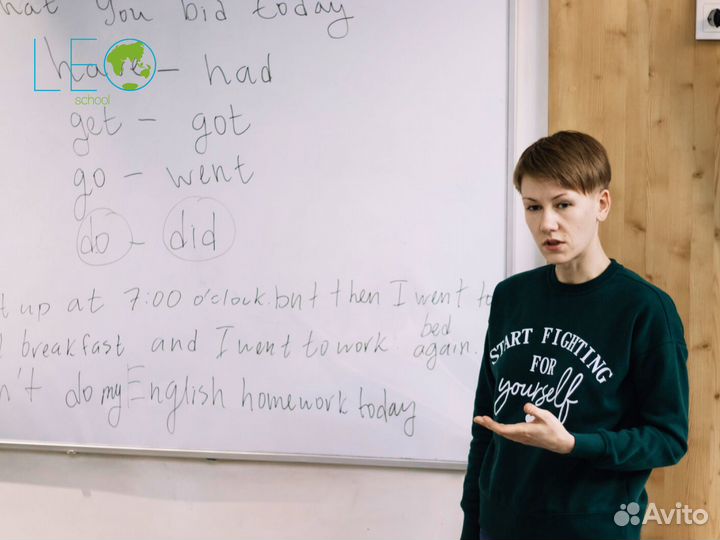 hat you bid today
LEO
school
have - had
get - got
go - went
do - did
t up at 7:00 o'clock. but then I went to
bed
breakfast and I went to work. again.
n't do my English homework today
START FIGHTING
FOR
yourself
Avito